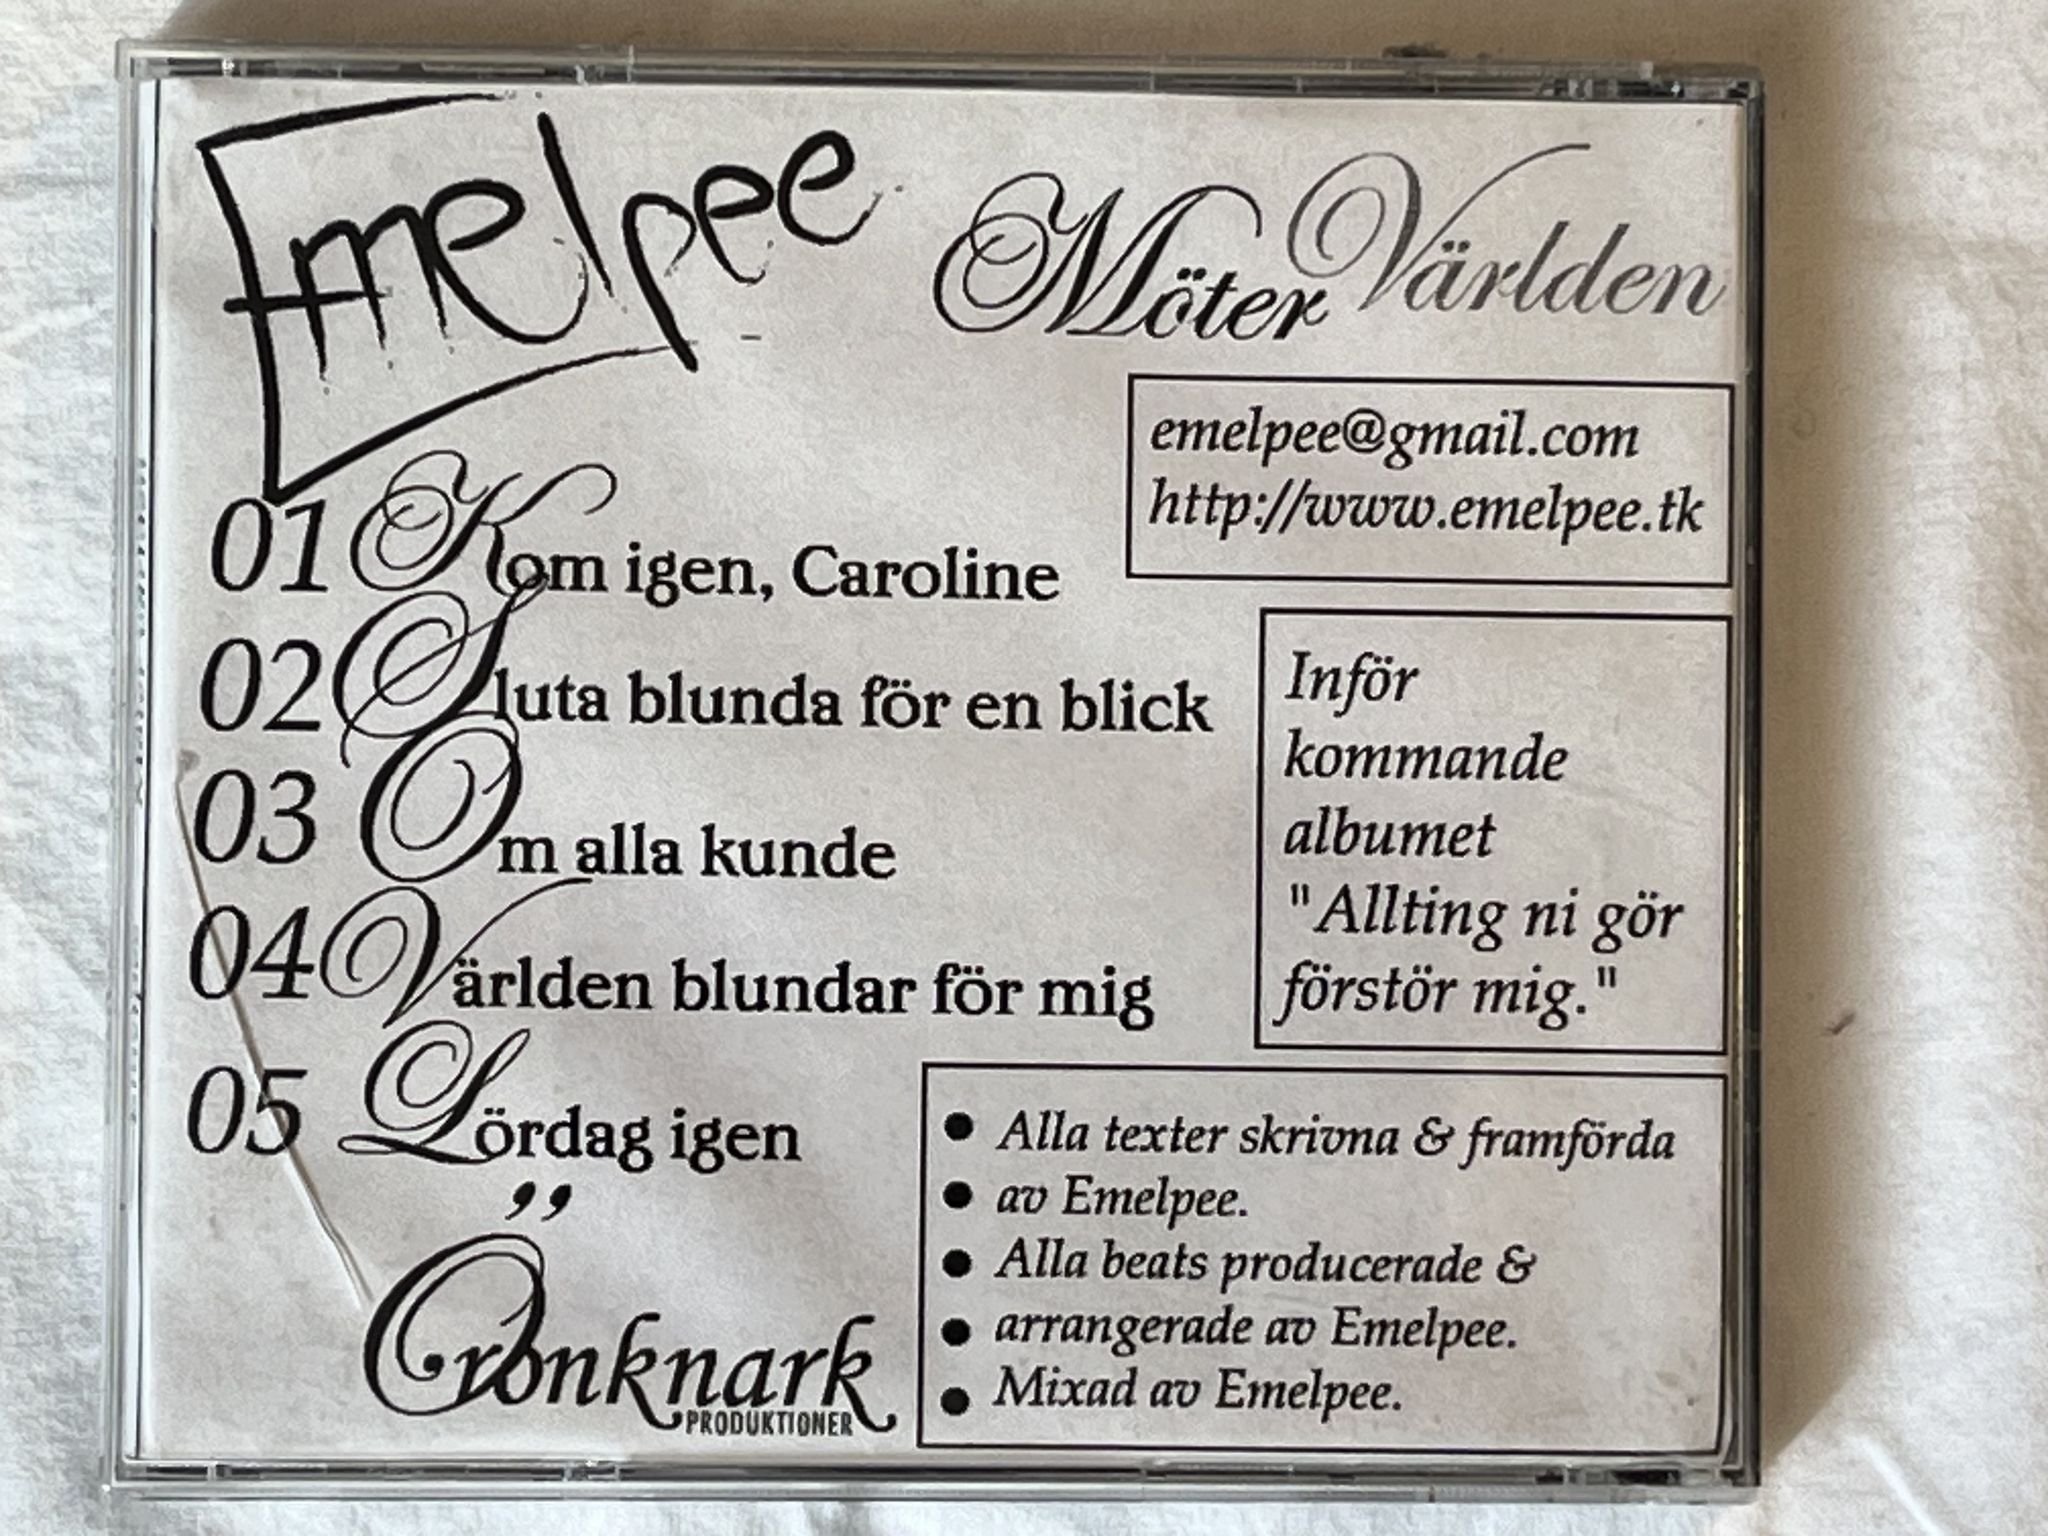 Emelpee
Möter Världen
emelpee@gmail.com
http://www.emelpee.tk
01 Kom igen, Caroline
02 Sluta blunda för en blick
03 Om alla kunde
04 Världen blundar för mig
05 Lördag igen
Inför
kommande
albumet
"Allting ni gör
förstör mig."
• Alla texter skrivna & framförda
• av Emelpee.
• Alla beats producerade &
• arrangerade av Emelpee.
• Mixad av Emelpee.
”
PRODUKTIONER